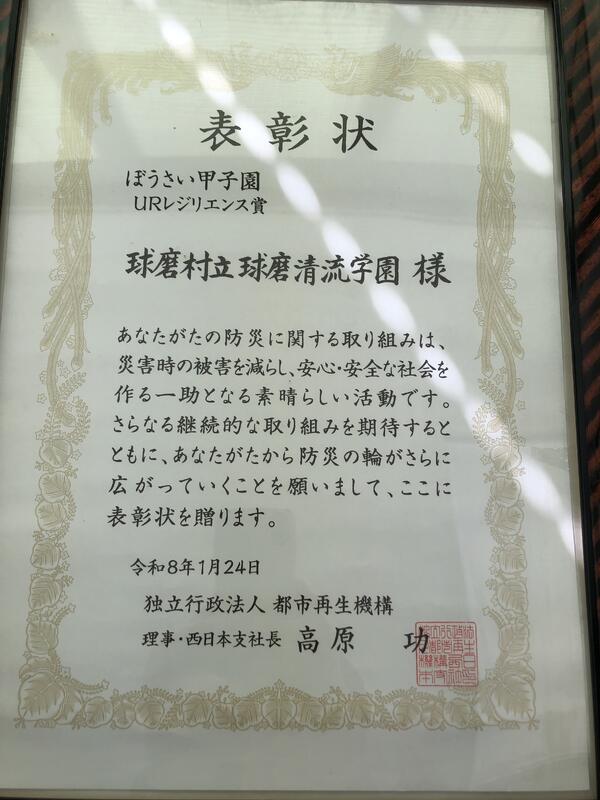 表彰状
ぼうさい甲子園
URレジリエンス賞
球磨村立球磨清流学園 様
あなたがたの防災に関する取り組みは、
災害時の被害を減らし、安心・安全な社会を
作る一助となる素晴らしい活動です。
さらなる継続的な取り組みを期待すると
ともに、あなたがたから防災の輪がさらに
広がっていくことを願いまして、ここに
表彰状を贈ります。
令和8年1月24日
独立行政法人 都市再生機構
理事・西日本支社長 高原 功